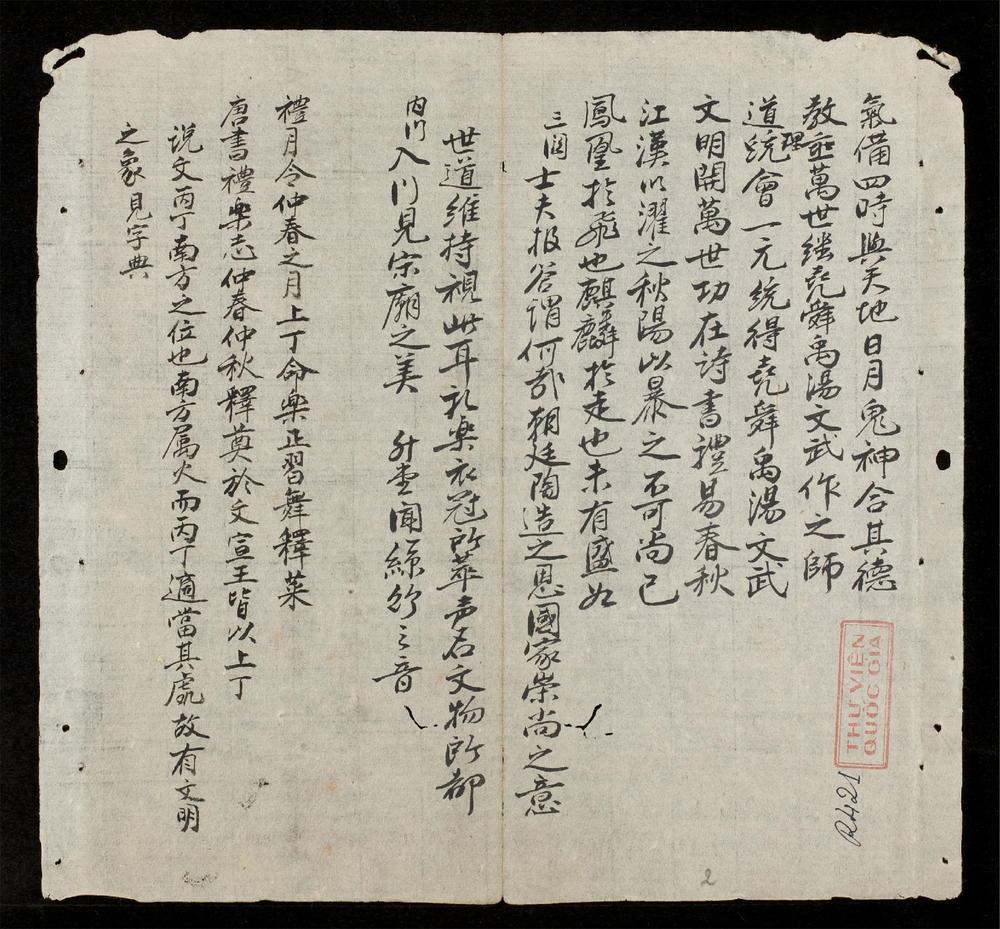 氣備四時與天地日月鬼神合其德
教垂萬世繼堯舜禹湯文武作之師
道統會一元統得堯舜禹湯文武
理
文明開萬世功在詩書禮易春秋
江漢以濯之秋陽以暴之不可尚已
鳳凰於飛也麒麟於走也未有盛如
三固 士夫报答謂何哉朝廷陶造之恩國家崇尚之意
世道維持視此耳礼樂衣冠所萃声名文物所都
内门 入门見宗廟之美 升堂聞絲竹之音
禮月令仲春之月上丁命樂正習舞釋菜
唐書禮樂志仲春仲秋釋奠於文宣王皆以上丁
说文丙丁南方之位也南方属火而丙丁適當其處故有文明
之象見字典
THƯ VIỆN
QUỐC GIA
R.421
2